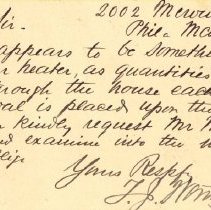 2002
Phila
Sir.
appears to be somethi
r heater, as quantities
hrough the house each
oal is placed upon the
kindly request Mr
nd examine into the
blige
Yours Respy